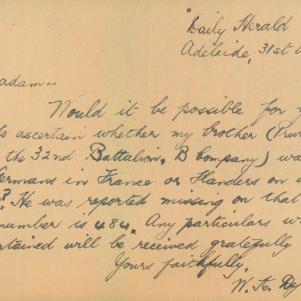 "Daily Herald
Adelaide, 31st
adam—
Would it be possible for
to ascertain whether my brother
the 32nd. Battalion, B Company) was
Germans in France or Flanders on
? He was reported missing on that
number is 484. Any particulars
ertained will be received gratefully
Yours faithfully,
W. Dy